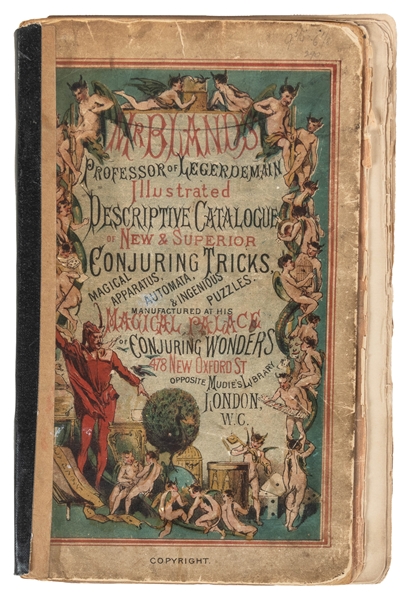 MR BLAND'S
PROFESSOR OF LEGERDEMAIN
Illustrated
DESCRIPTIVE CATALOGUE
OF NEW & SUPERIOR
CONJURING TRICKS,
MAGICAL APPARATUS, AUTOMATA, & INGENIOUS PUZZLES.
MANUFACTURED AT HIS
MAGICAL PALACE
OF CONJURING WONDERS
478 NEW OXFORD ST
OPPOSITE MUDIE'S LIBRARY,
LONDON,
W.C.
COPYRIGHT.